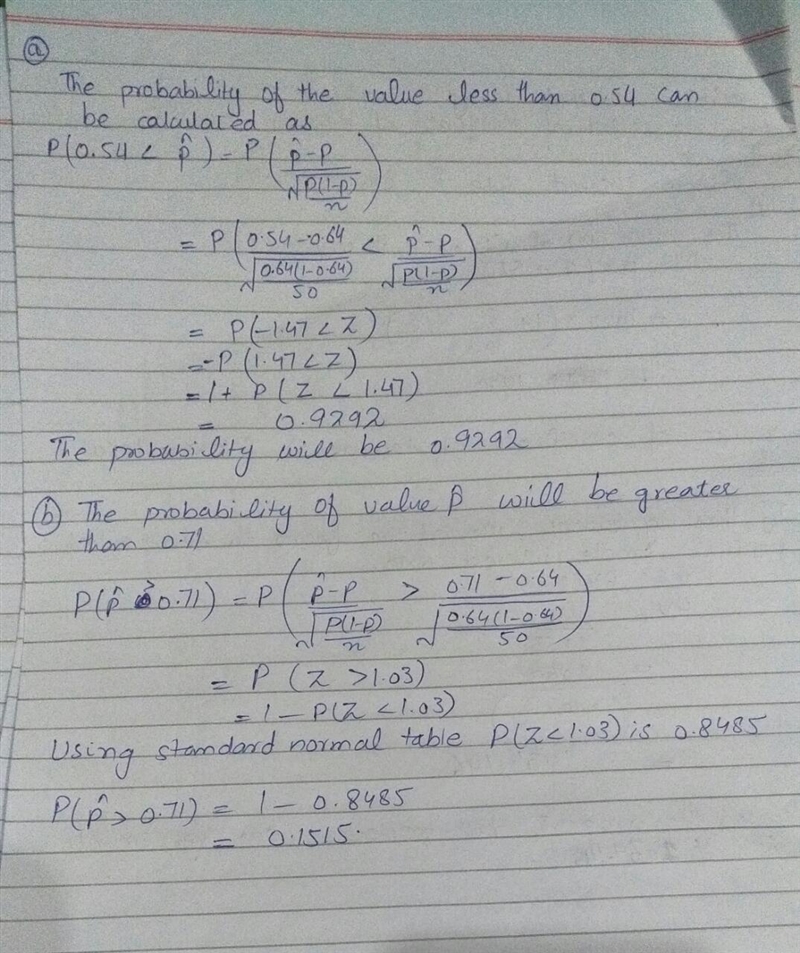 (a)
The probability of the value less than 0.54 can
be calculated as
P(0.54 < p̂) = P( (p̂-P) / √(P(1-p)/n) )
= P( (0.54 - 0.64) / √(0.64(1-0.64)/50) < (p̂-P) / √(P(1-p)/n) )
= P(-1.47 < Z)
= -P(1.47 < Z)
= 1 + P(Z < 1.47)
= 0.9292
The probability will be 0.9292
(b) The probability of value p̂ will be greater
than 0.71
P(p̂ > 0.71) = P( (p̂-P) / √(P(1-p)/n) > (0.71 - 0.64) / √(0.64(1-0.64)/50) )
= P (Z > 1.03)
= 1 - P(Z < 1.03)
Using standard normal table P(Z < 1.03) is 0.8485
P(p̂ > 0.71) = 1 - 0.8485
= 0.1515.